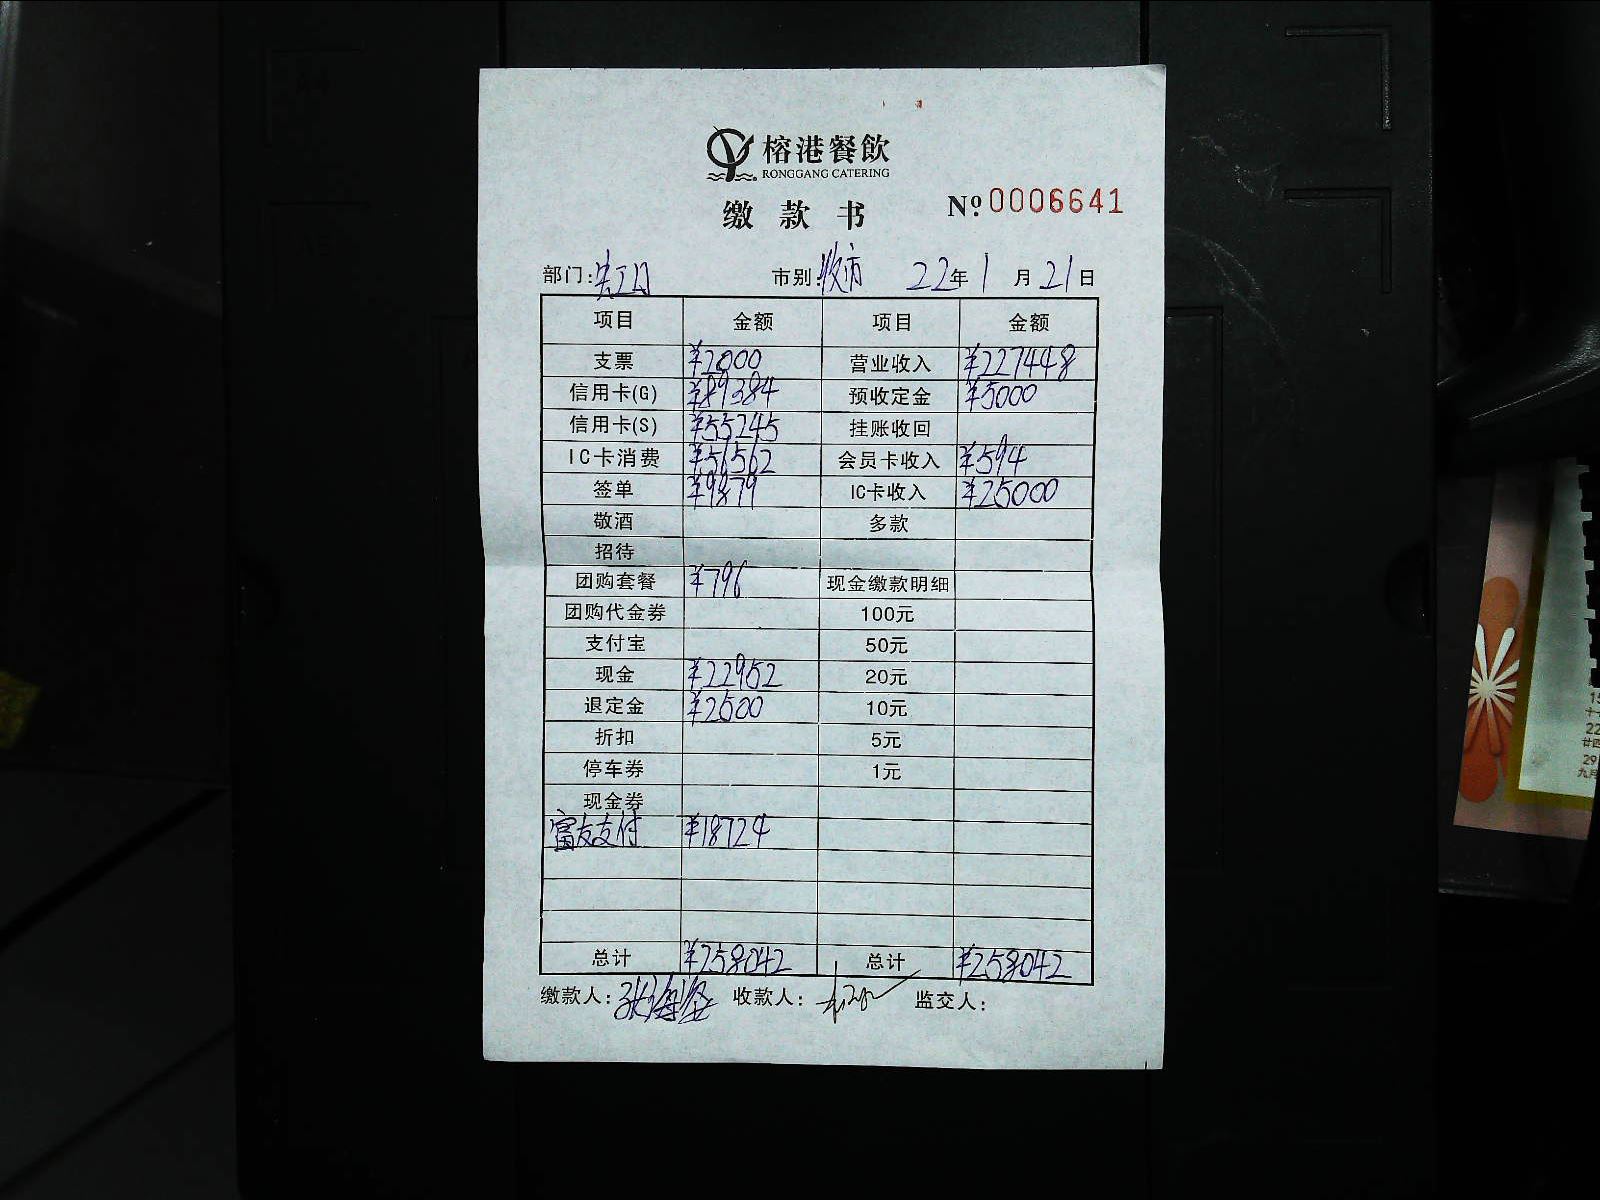 榕港餐飲
RONGGANG CATERING
缴款书 Nº 0006641
部门: 市别:收市 22年1月21日
项目 金额 项目 金额
支票 ¥2000 营业收入 ¥227448
信用卡(G) ¥89384 预收定金 ¥5000
信用卡(S) ¥55245 挂账收回
IC卡消费 ¥56562 会员卡收入 ¥594
签单 ¥9879 IC卡收入 ¥25000
敬酒 多款
招待
团购套餐 ¥796 现金缴款明细
团购代金券 100元
支付宝 50元
现金 ¥22952 20元
退定金 ¥2500 10元
折扣 5元
停车券 1元
现金券
富友支付 ¥18724
总计 ¥258042 总计 ¥258042
缴款人: 收款人: 监交人: